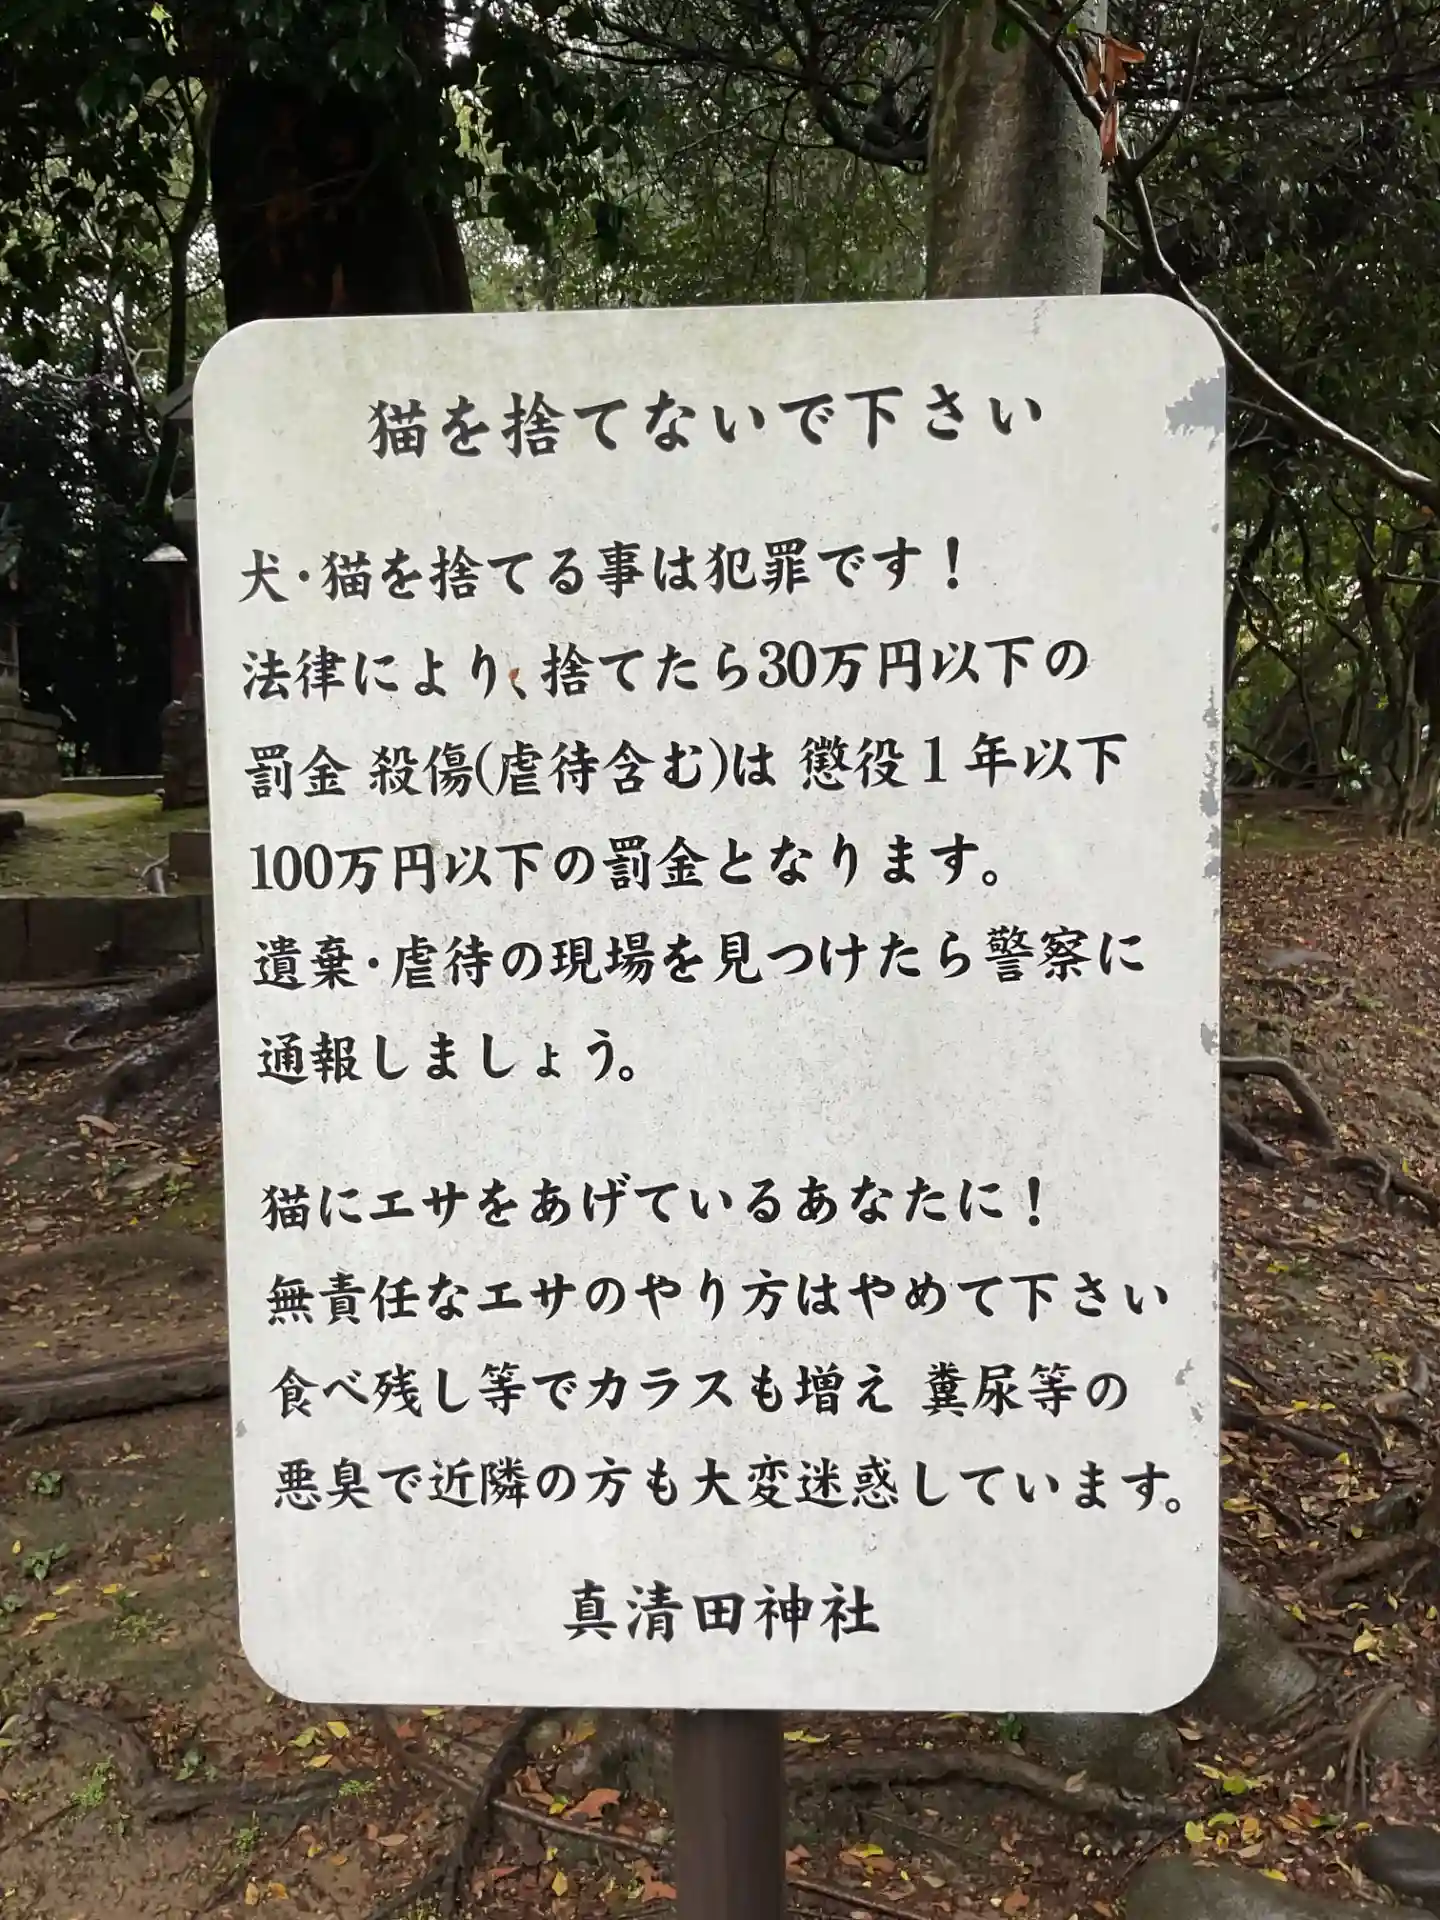 猫を捨てないで下さい
犬・猫を捨てる事は犯罪です！
法律により、捨てたら30万円以下の
罰金 殺傷(虐待含む)は 懲役１年以下
100万円以下の罰金となります。
遺棄・虐待の現場を見つけたら警察に
通報しましょう。
猫にエサをあげているあなたに！
無責任なエサのやり方はやめて下さい
食べ残し等でカラスも増え 糞尿等の
悪臭で近隣の方も大変迷惑しています。
真清田神社